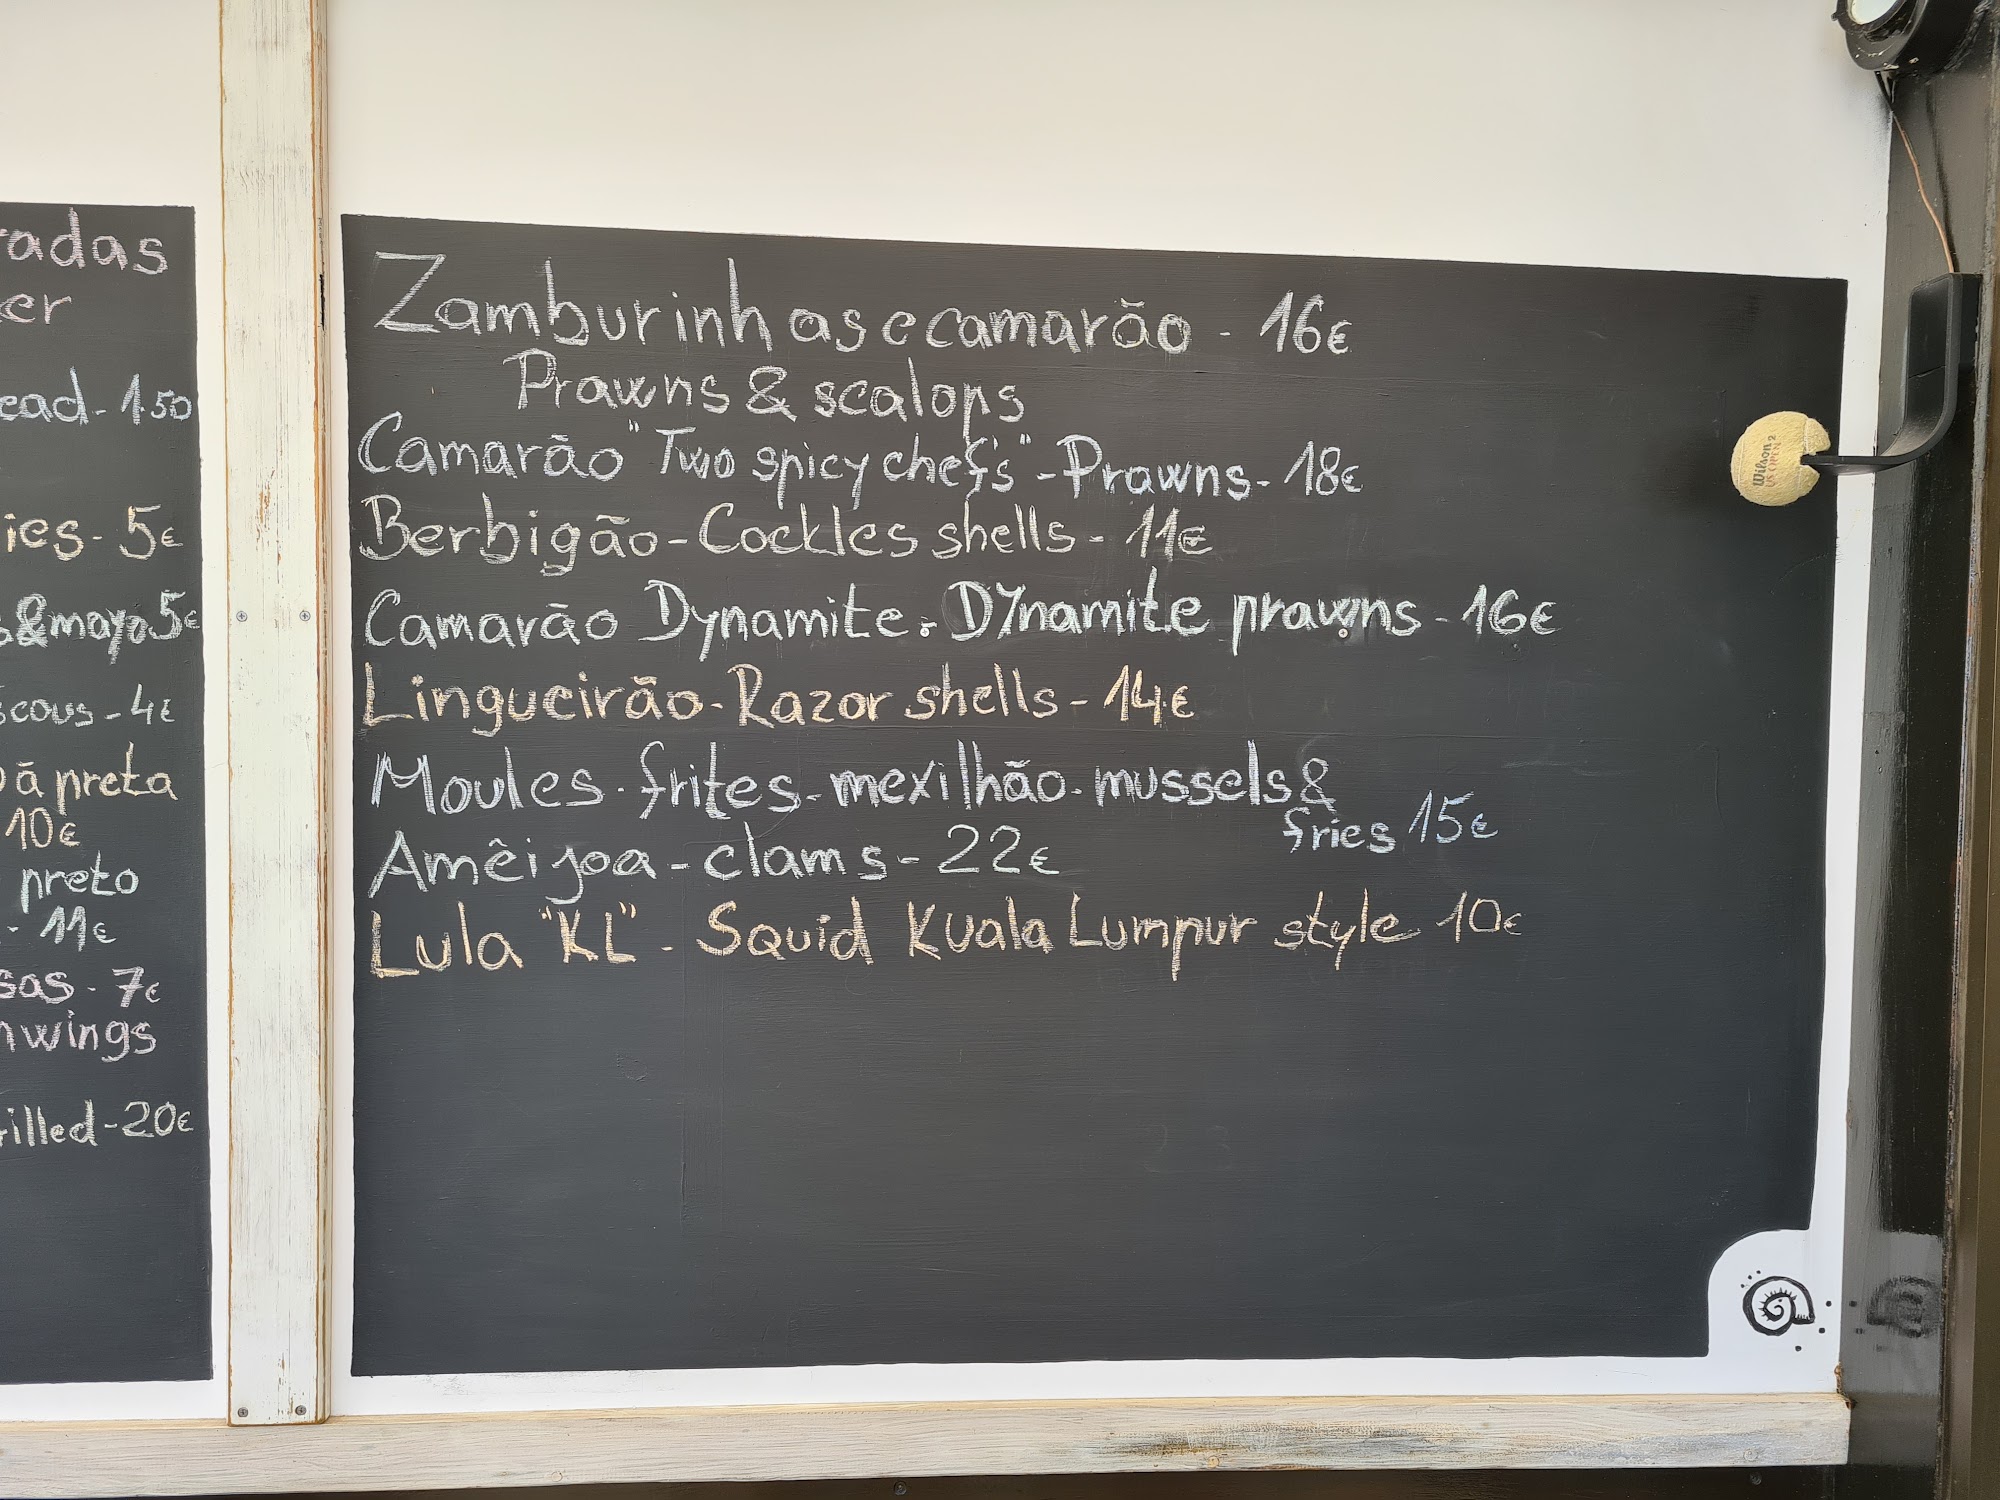 radas
er
ead - 1.50
ies - 5€
s&mayo 5€
scous - 4€
o ā preta
10€
preto
- 11€
sas - 7€
nwings
rilled - 20€
Zamburinhas e camarão - 16€
Prawns & scalops
Camarão "Two spicy chef's" - Prawns - 18€
Berbigão - Cockles shells - 11€
Camarão Dynamite. Dynamite prawns - 16€
Lingueirão - Razor shells - 14€
Moules - frites - mexilhão - mussels &
fries 15€
Amêijoa - clams - 22€
Lula "KL" - Squid Kuala Lumpur style 10€
Wilson 2
US OPEN